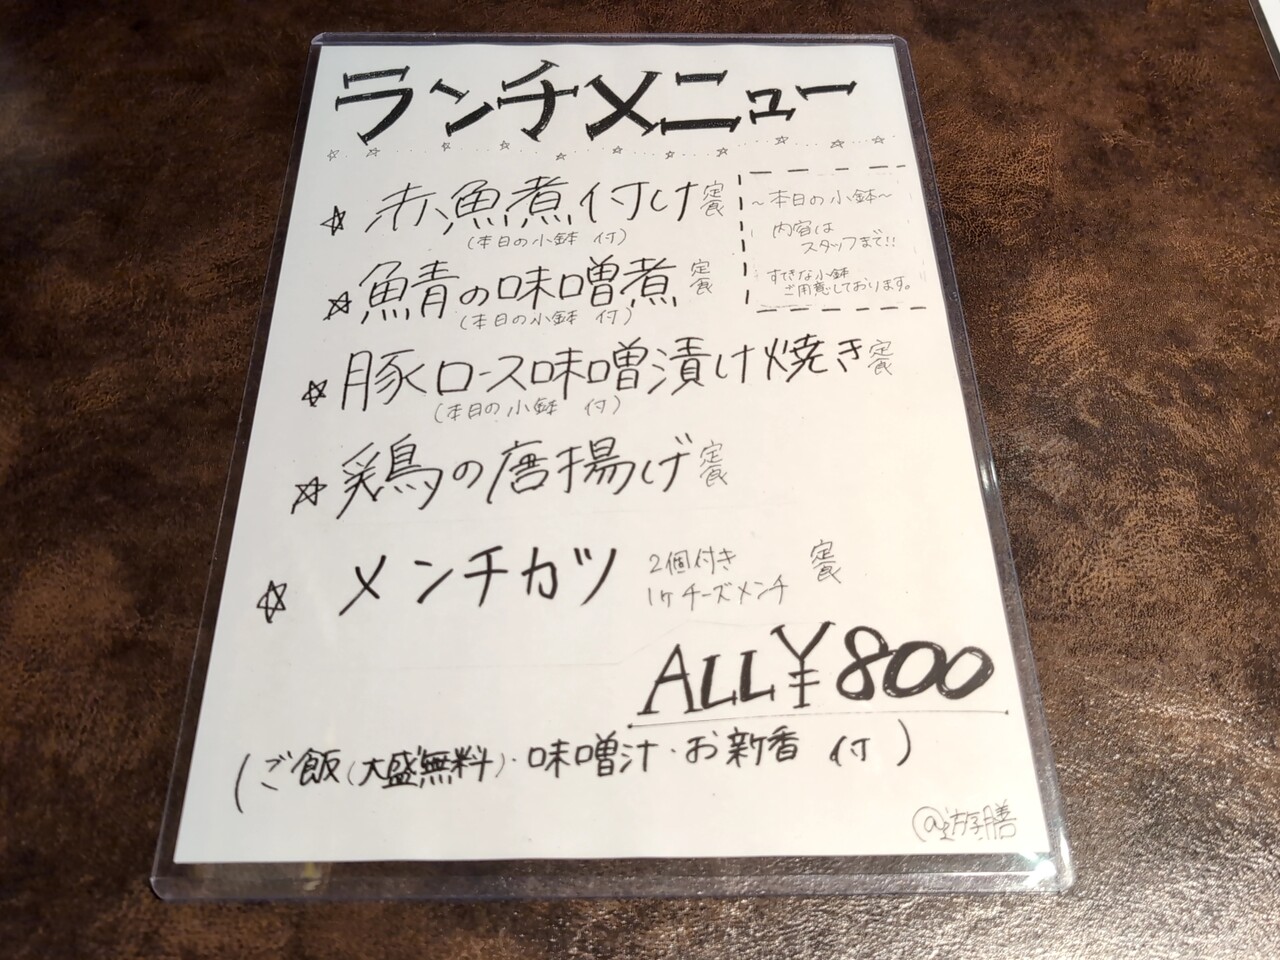 ランチメニュー
☆ 赤魚煮付け定食
(本日の小鉢 付)
☆ 鯖の味噌煮定食
(本日の小鉢 付)
☆ 豚ロース味噌漬け焼き定食
(本日の小鉢 付)
☆ 鶏の唐揚げ定食
☆ メンチカツ 2個付き 定食
1ヶチーズメンチ
~本日の小鉢~
内容は
スタッフまで!!
すてきな小鉢
ご用意しております。
ALL ¥800
(ご飯(大盛無料)・味噌汁・お新香 付)
@遊膳